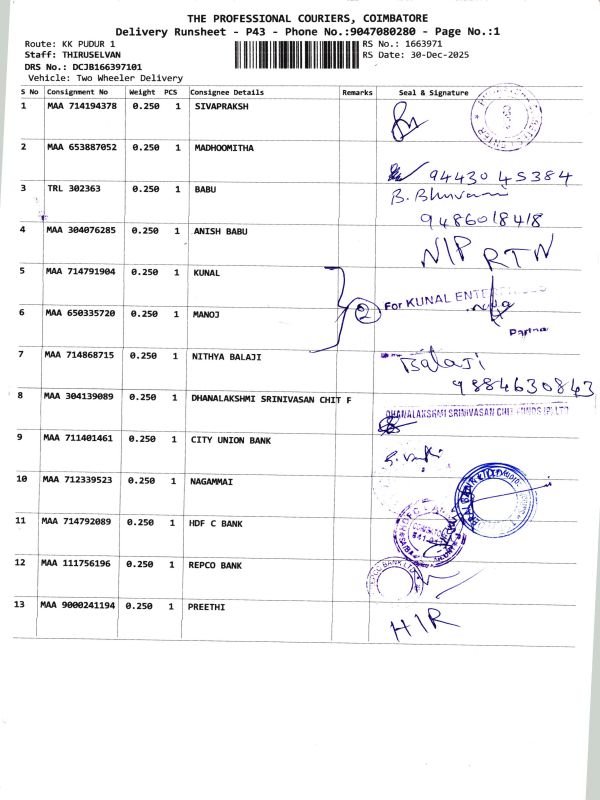 THE PROFESSIONAL COURIERS, COIMBATORE
Delivery Runsheet - P43 - Phone No.:9047080280 - Page No.:1
Route: KK PUDUR 1
RS No.: 1663971
Staff: THIRUSELVAN
RS Date: 30-Dec-2025
DRS No.: DCJB166397101
Vehicle: Two Wheeler Delivery
S No Consignment No Weight PCS Consignee Details Remarks Seal & Signature
1 MAA 714194378 0.250 1 SIVAPRAKSH
2 MAA 653887052 0.250 1 MADHOOMITHA
94430 45384
3 TRL 302363 0.250 1 BABU B. Bhuvani
9486018418
4 MAA 304076285 0.250 1 ANISH BABU N/P RTN
5 MAA 714791904 0.250 1 KUNAL
2 For KUNAL ENTE
6 MAA 650335720 0.250 1 MANOJ
Partner
7 MAA 714868715 0.250 1 NITHYA BALAJI Balaji
9884630843
8 MAA 304139089 0.250 1 DHANALAKSHMI SRINIVASAN CHIT F
DHANALAKSHMI SRINIVASAN CHIT FUNDS (P) LTD
9 MAA 711401461 0.250 1 CITY UNION BANK
10 MAA 712339523 0.250 1 NAGAMMAI
11 MAA 714792089 0.250 1 HDF C BANK
12 MAA 111756196 0.250 1 REPCO BANK
13 MAA 9000241194 0.250 1 PREETHI H/R